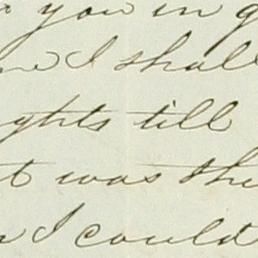 you in
I shall
ghts till
t was the
I could